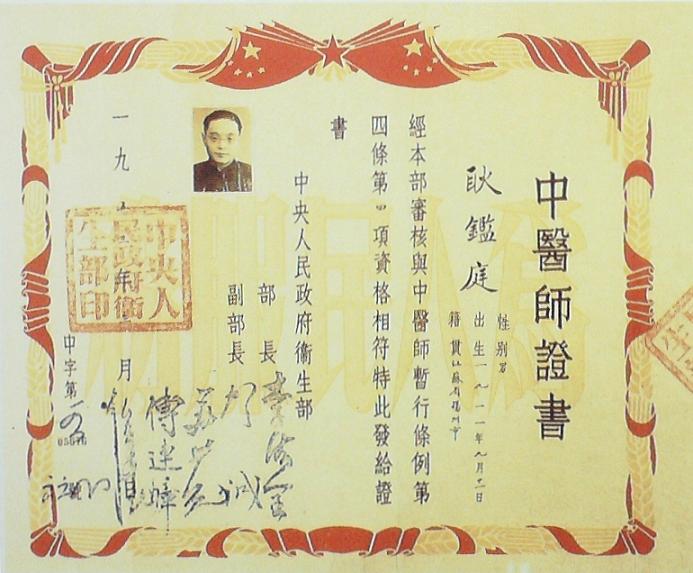 中醫師證書
耿鑑庭
性别男
出生一九一一年九月十一日
籍貫江蘇省揚州市
經本部審核與中醫師暫行條例第
四條第四項資格相符特此發給證
書
中央人民政府衞生部
部長李德全
副部長賀誠
蘇井觀
傅連暲
一九
月
中央人
民政府衞
生部印
中字第
為人民服務